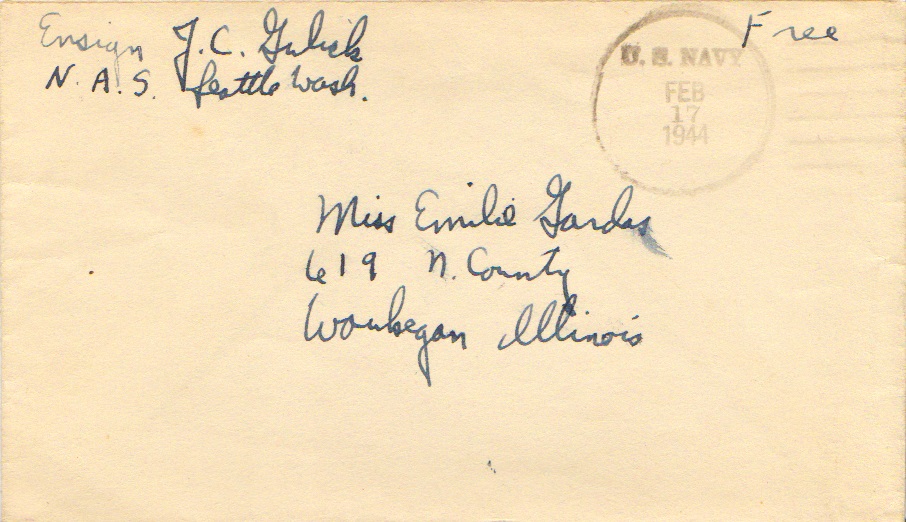 Ensign J.C. Gulick
N.A.S. Seattle Wash.
Free
U.S. NAVY
FEB
17
1944
Miss Emilie Gardas
619 N. County
Waukegan Illinois